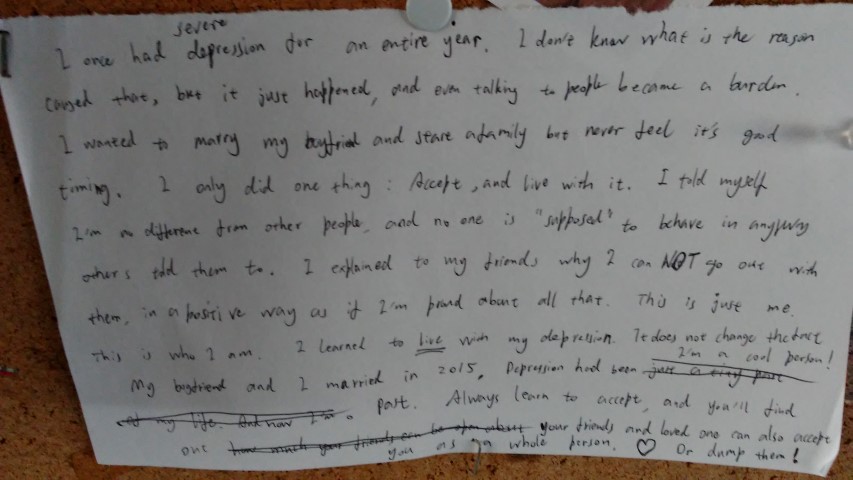 I once had severe depression for an entire year. I don't know what is the reason
caused that, but it just happened, and even talking to people became a burden.
I wanted to marry my boyfriend and start a family but never feel it's good
timing. I only did one thing: Accept, and live with it. I told myself
I'm no different from other people, and no one is "supposed" to behave in anyway
others told them to. I explained to my friends why I can NOT go out with
them, in a positive way as if I'm proud about all that. This is just me.
This is who I am. I learned to live with my depression. It does not change the fact
I'm a cool person!
My boyfriend and I married in 2015. Depression had been just a tiny part
of my life. And now I'm a past. Always learn to accept, and you'll find
out how much your friends can be open about your friends and loved one can also accept
you as a whole person. ♡ Or dump them!